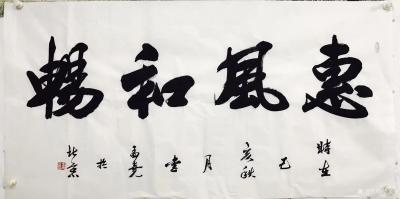 惠風和暢
時在
己
亥秋
月
於
北京